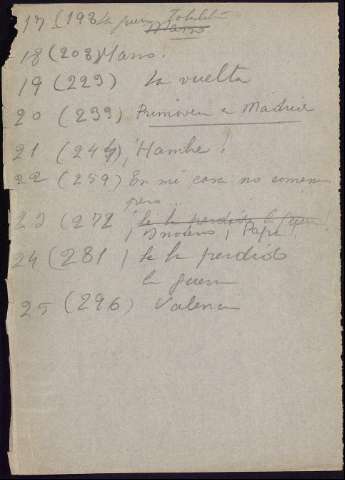 17 (198 la guerra
18 (208) Marzo.
19 (223) La vuelta
20 (239) Primavera en Madrid
21 (244) ¡Hambre!
22 (259) En mi casa no comemos
pero...
23 (272 ¡Se ha perdido la guerra!
¡ Papá
24 (281) ¡Se ha perdido
la guerra
25 (296) Valencia